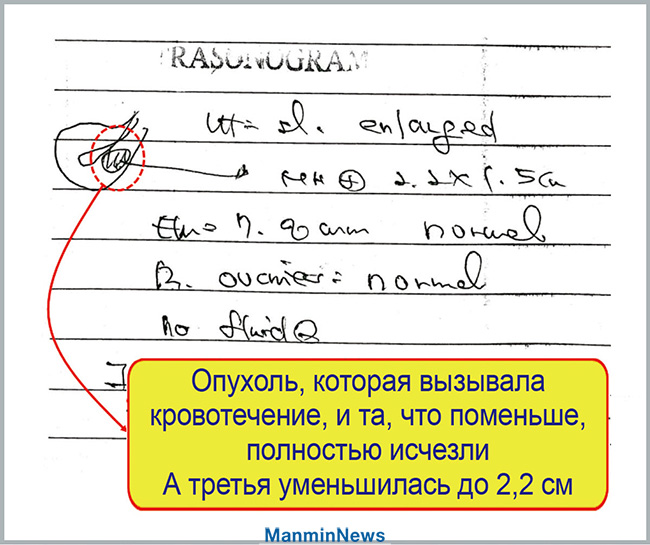 TRASONOGRAM
Ut = sl. enlarged
⊕ 2.2 x 1.5 cm
7.9 mm normal
B. ovaries = normal
no fluid
Опухоль, которая вызывала
кровотечение, и та, что поменьше,
полностью исчезли
А третья уменьшилась до 2,2 см
ManminNews